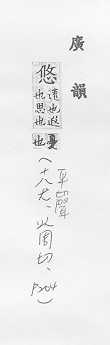 廣韻
悠遠也遐也思也憂也
平聲
(十八尤、以周切、P204)